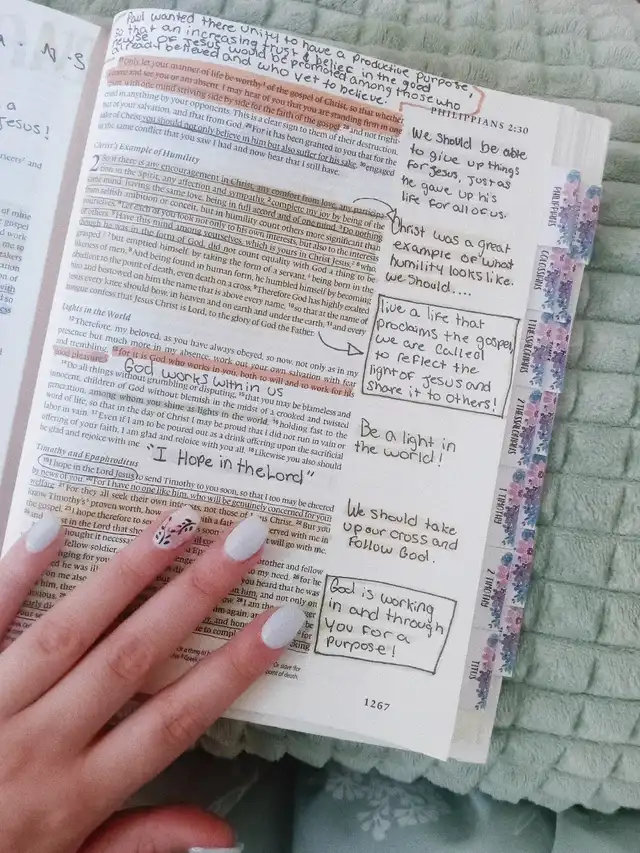 Paul wanted there unity to have a productive purpose,
so that an increasing trust & believe in the good
newse of Jesus would be promoted among those who
already believed and who yet to believe.
PHILIPPIANS 2:30
only let your manner of life be worthy of the gospel of Christ, so that whether
I come and see you or am absent, I may hear of you that you are standing firm in one
spirit, with one mind striving side by side for the faith of the gospel, 28 and not fright-
ened in anything by your opponents. This is a clear sign to them of their destruction,
but of your salvation, and that from God. 29 For it has been granted to you that for the
sake of Christ you should not only believe in him but also suffer for his sake, 30 engaged
in the same conflict that you saw I had and now hear that I still have.
Christ's Example of Humility
2 So if there is any encouragement in Christ, any comfort from love, any participa-
tion in the Spirit, any affection and sympathy, 2 complete my joy by being of the
same mind, having the same love, being in full accord and of one mind. 3 Do nothing
from selfish ambition or conceit, but in humility count others more significant than
yourselves. 4 Let each of you look not only to his own interests, but also to the interests
of others. 5 Have this mind among yourselves, which is yours in Christ Jesus, 6 who,
though he was in the form of God, did not count equality with God a thing to be
grasped, 7 but emptied himself, by taking the form of a servant, being born in the
likeness of men. 8 And being found in human form, he humbled himself by becoming
obedient to the point of death, even death on a cross. 9 Therefore God has highly exalted
him and bestowed on him the name that is above every name, 10 so that at the name of
Jesus every knee should bow, in heaven and on earth and under the earth, 11 and every
tongue confess that Jesus Christ is Lord, to the glory of God the Father.
Lights in the World
12 Therefore, my beloved, as you have always obeyed, so now, not only as in my
presence but much more in my absence, work out your own salvation with fear
and trembling, 13 for it is God who works in you, both to will and to work for his
good pleasure.
God works within us
14 Do all things without grumbling or disputing, 15 that you may be blameless and
innocent, children of God without blemish in the midst of a crooked and twisted
generation, among whom you shine as lights in the world, 16 holding fast to the
word of life, so that in the day of Christ I may be proud that I did not run in vain or
labor in vain. 17 Even if I am to be poured out as a drink offering upon the sacrificial
offering of your faith, I am glad and rejoice with you all. 18 Likewise you also should
be glad and rejoice with me.
"I Hope in the Lord"
Timothy and Epaphroditus
19 I hope in the Lord Jesus to send Timothy to you soon, so that I too may be cheered
by news of you. 20 For I have no one like him, who will be genuinely concerned for your
welfare. 21 For they all seek their own interests, not those of Jesus Christ. 22 But you
know Timothy's proven worth, how as a son with a father he has served with me in
the gospel. 23 I hope therefore to send
in the Lord that
thought it necessary
fellow soldier,
brother and
my need, 26 for he
you heard that he was
him, and not only on
28 I am the
again, and
and honor
to compl
We should be able
to give up things
for Jesus, just as
he gave up his
life for all of us.
Christ was a great
example of what
humility looks like.
We should....
live a life that
proclaims the gospel,
we are called
to reflect the
light of Jesus and
share it to others!
Be a light in
the world!
We should take
up our cross and
follow God.
God is working
in and through
you for a
purpose!
1267
PHILIPPIANS
COLOSSIANS
1 THESSALONIANS
2 THESSALONIANS
1 TIMOTHY
2 TIMOTHY
TITUS